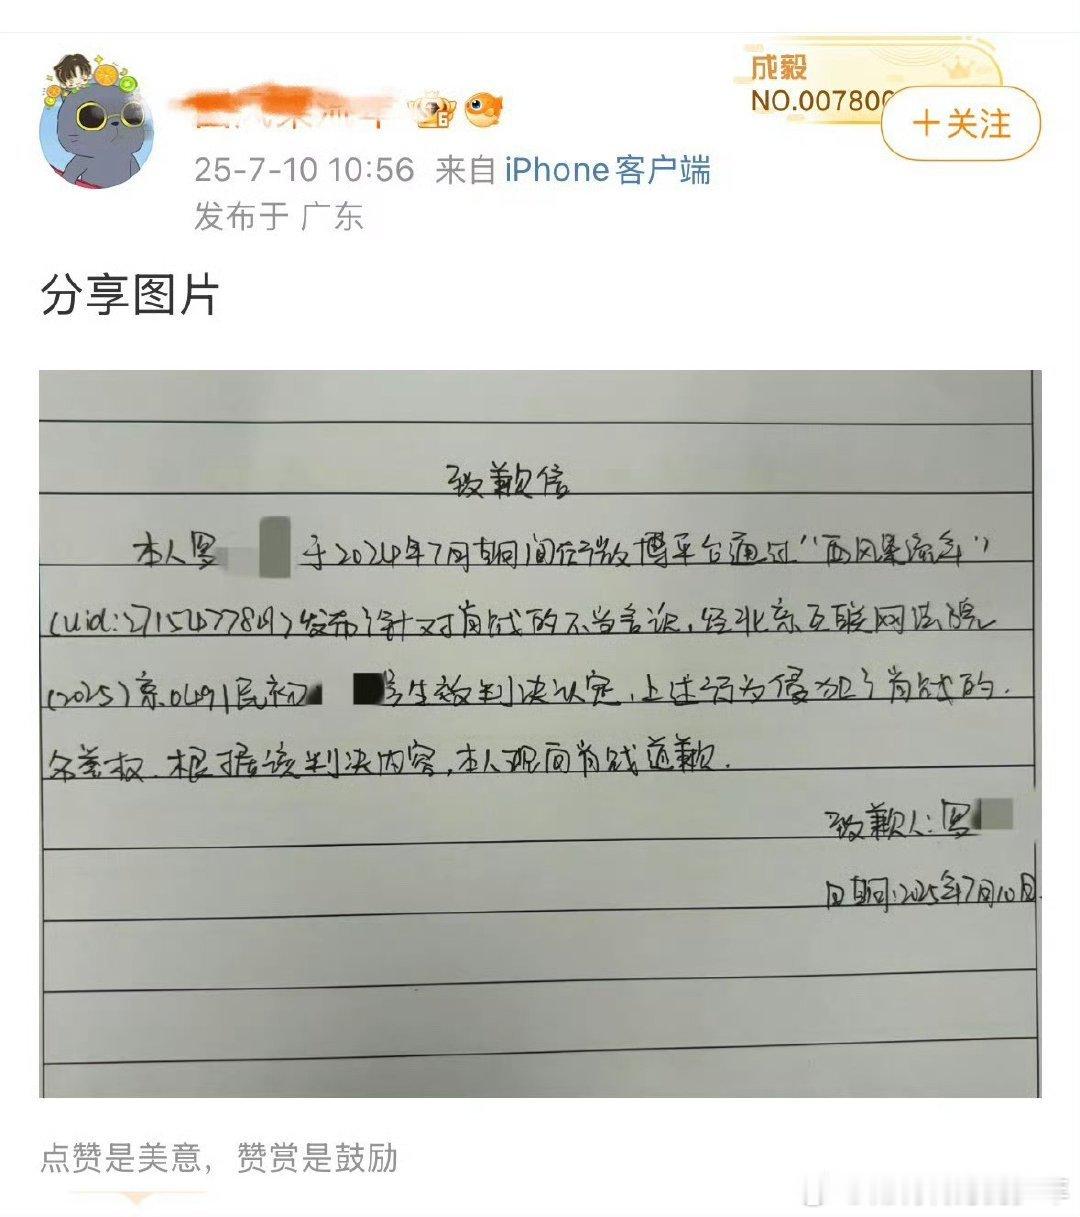 成毅
NO.007800
+关注
25-7-10 10:56 来自 iPhone客户端
发布于 广东
分享图片
致歉信
本人罗 于2024年7月期间在微博平台通过"西风果流年"
(uid:2715477849)发布针对肖战的不当言论,经北京互联网法院
(2025)京0491民初 号生效判决认定,上述行为侵犯了肖战的
名誉权.根据该判决内容,本人现向肖战道歉.
致歉人:罗
日期:2025年7月10日.
点赞是美意,赞赏是鼓励